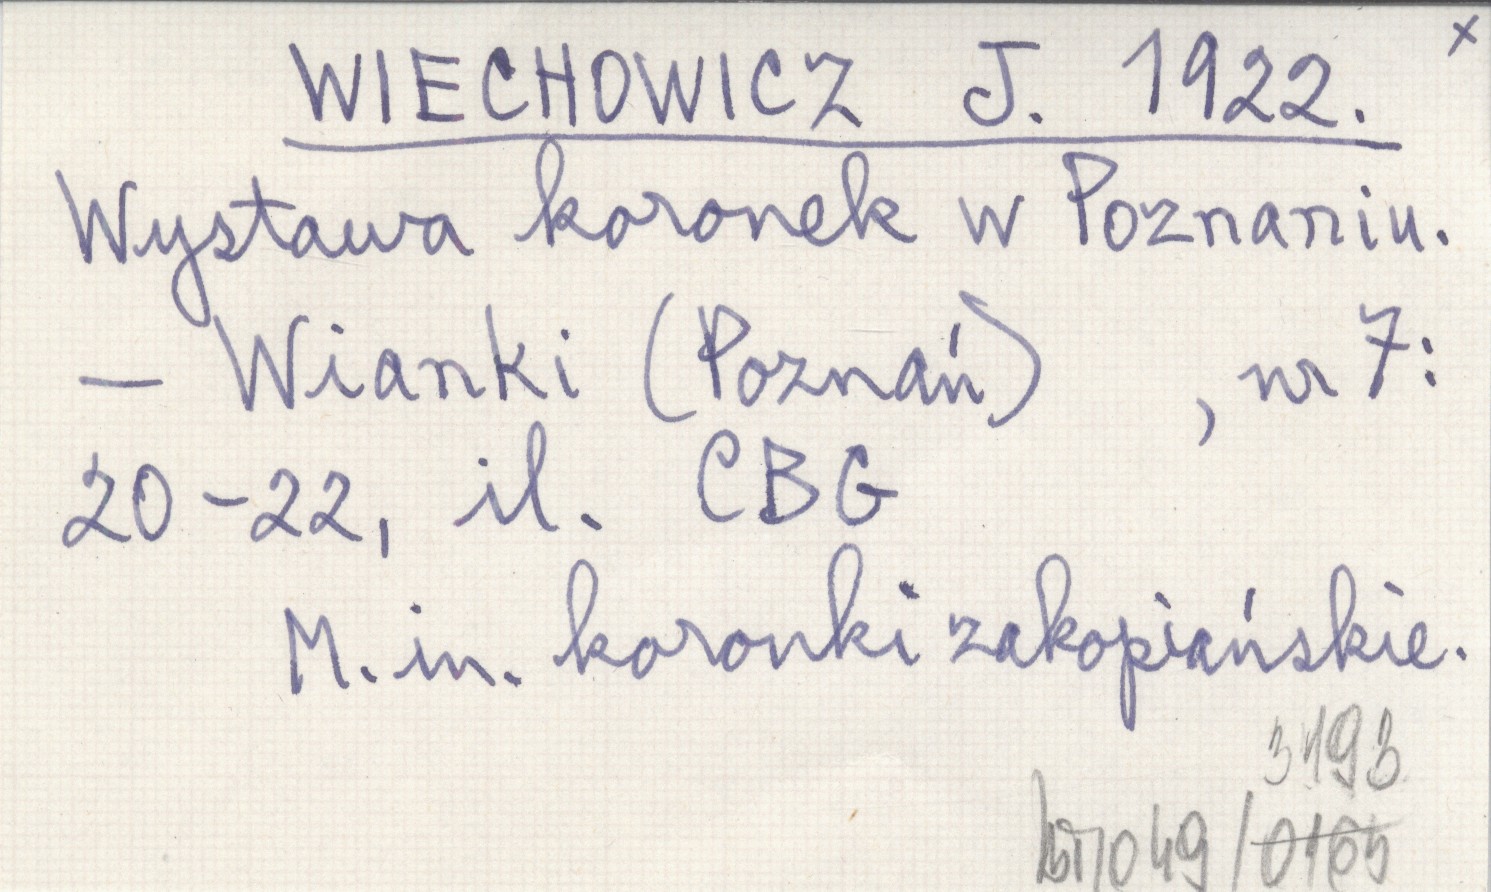 x
WIECHOWICZ J. 1922.
Wystawa koronek w Poznaniu.
— Wianki (Poznań) , nr 7:
20-22, il. CBG
M. in. koronki zakopiańskie.
3193
049/0165